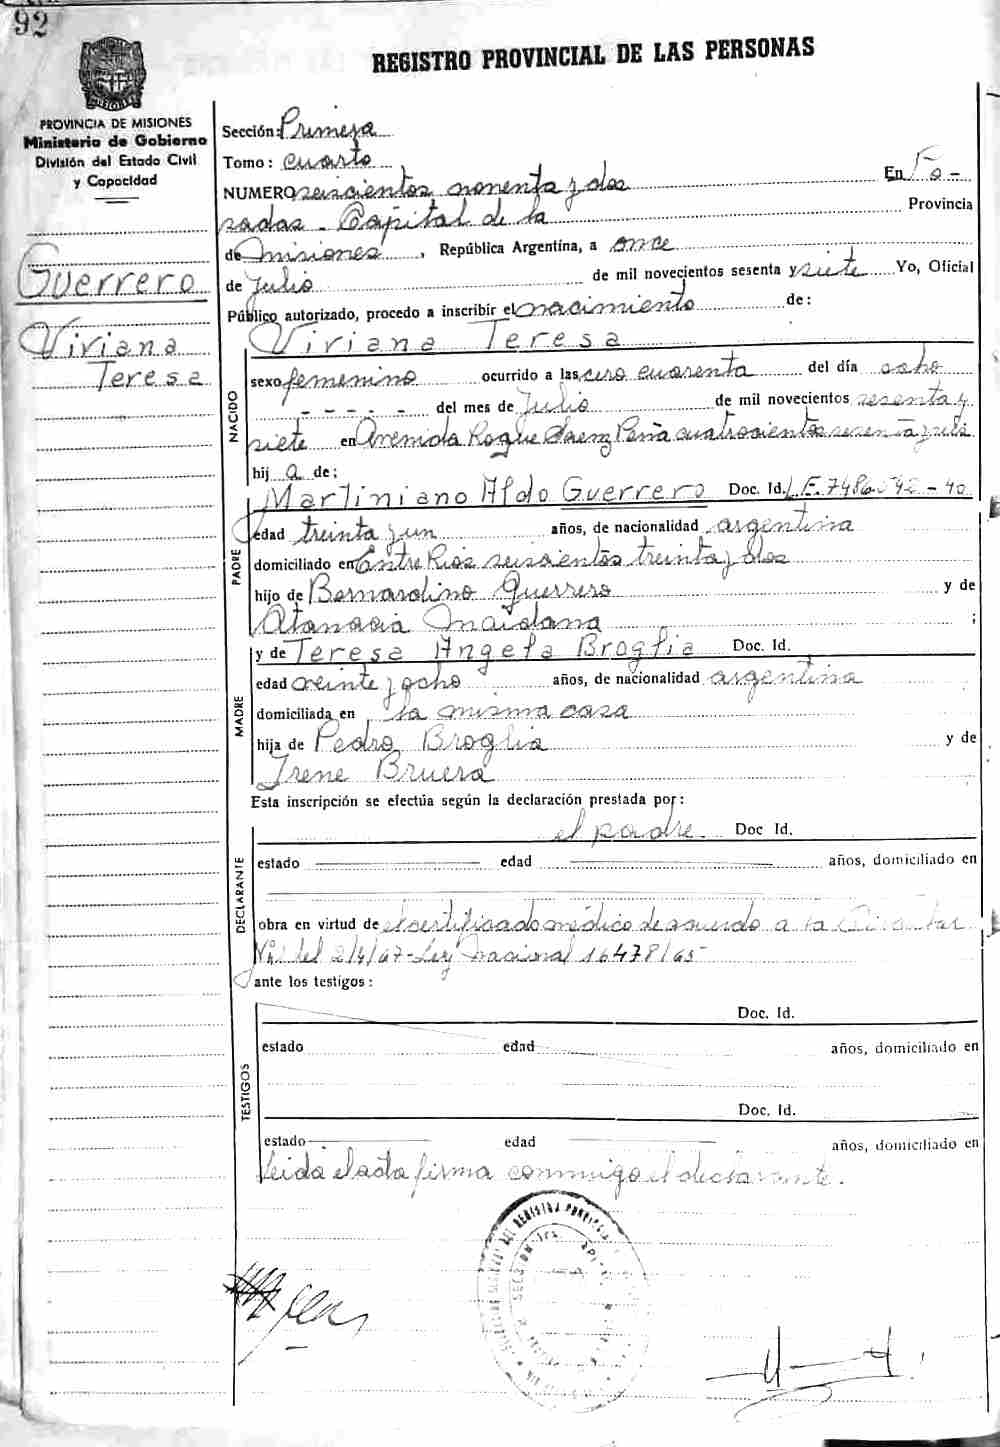 92
REGISTRO PROVINCIAL DE LAS PERSONAS
PROVINCIA DE MISIONES
Ministerio de Gobierno
División del Estado Civil
y Capacidad
Guerrero
Viviana
Teresa
Sección: Primera
Tomo: cuarto
NUMERO seiscientos noventa y dos En Po-
sadas - Capital de la Provincia
de Misiones, República Argentina, a once
de Julio de mil novecientos sesenta y siete Yo, Oficial
Público autorizado, procedo a inscribir el nacimiento de:
Viviana Teresa
NACIDO
sexo femenino ocurrido a las cero cuarenta del día ocho
- - - - - del mes de Julio de mil novecientos sesenta y
siete en Avenida Roque Saenz Peña cuatrocientos sesenta y seis
hij a de:
Martiniano Aldo Guerrero Doc. Id. L.E. 
PADRE
edad treinta y un años, de nacionalidad argentina
domiciliado en Entre Rios seiscientos treinta y dos
hijo de Bernardino Guerrero y de
Atanacia Maidana ;
y de Teresa Angela Broglia Doc. Id.
MADRE
edad veinte y ocho años, de nacionalidad argentina
domiciliada en la misma casa
hija de Pedro Broglia y de
Irene Bruera
Esta inscripción se efectúa según la declaración prestada por:
el padre Doc Id.
DECLARANTE
estado edad años, domiciliado en
obra en virtud de el certificado médico de acuerdo a la Circular
del 2/4/67 - Ley Nacional 16478/65
ante los testigos:
TESTIGOS
Doc. Id.
estado edad años, domiciliado en
Doc. Id.
estado edad años, domiciliado en
Leida el acta firma conmigo el declarante.